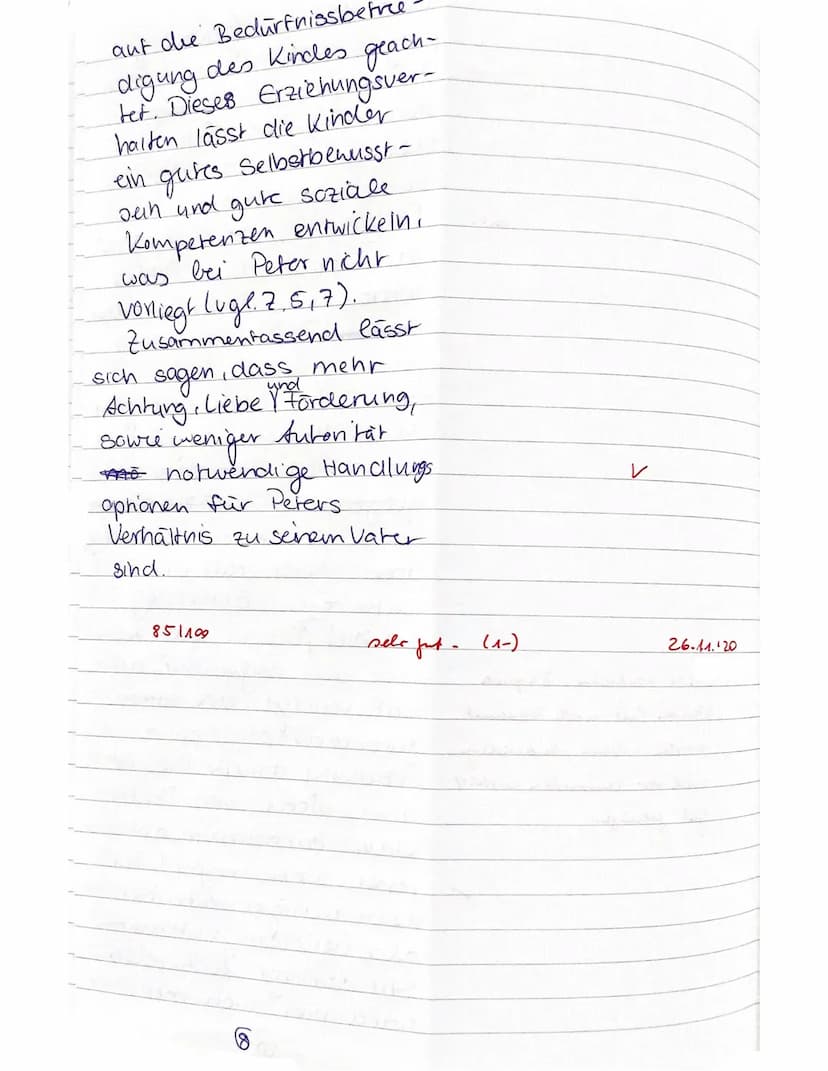 auf die Bedürfnissbefrie-
digung des Kindes geach-
tet. Dieses Erziehungsver-
halten lässt die Kinder
ein gutes Selbstbewusst-
sein und gute soziale
Kompetenzen entwickeln,
was bei Peter nicht
vorliegt (vgl. Z. 5, 7).
Zusammenfassend lässt
sich sagen, dass mehr
und
Achtung, Liebe Förderung,
sowie weniger Autorität
notwendige Handlungs
optionen für Peters
Verhältnis zu seinem Vater
sind.
85/100 sehr gut - (1-) 26.11.'20
8